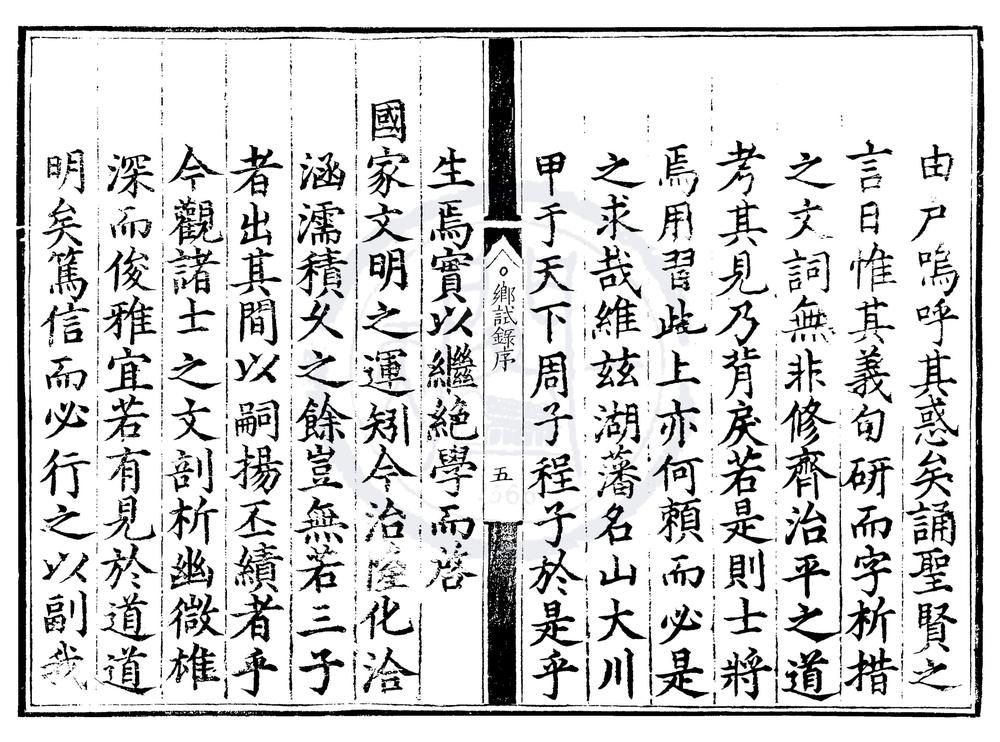 由尸嗚呼其惑矣誦聖賢之
言日惟其義句研而字析措
之文詞無非修齊治平之道
考其見乃背戾若是則士將
焉用習此上亦何頼而必是
之求哉維兹湖藩名山大川
甲于天下周子程子於是乎
鄉試錄序
五
生焉實以繼絶學而啓
國家文明之運矧今治隆化洽
涵濡積久之餘豈無若三子
者出其間以嗣揚丕績者乎
今觀諸士之文剖析幽微雄
深而俊雅宜若有見於道道
明矣篤信而必行之以副我